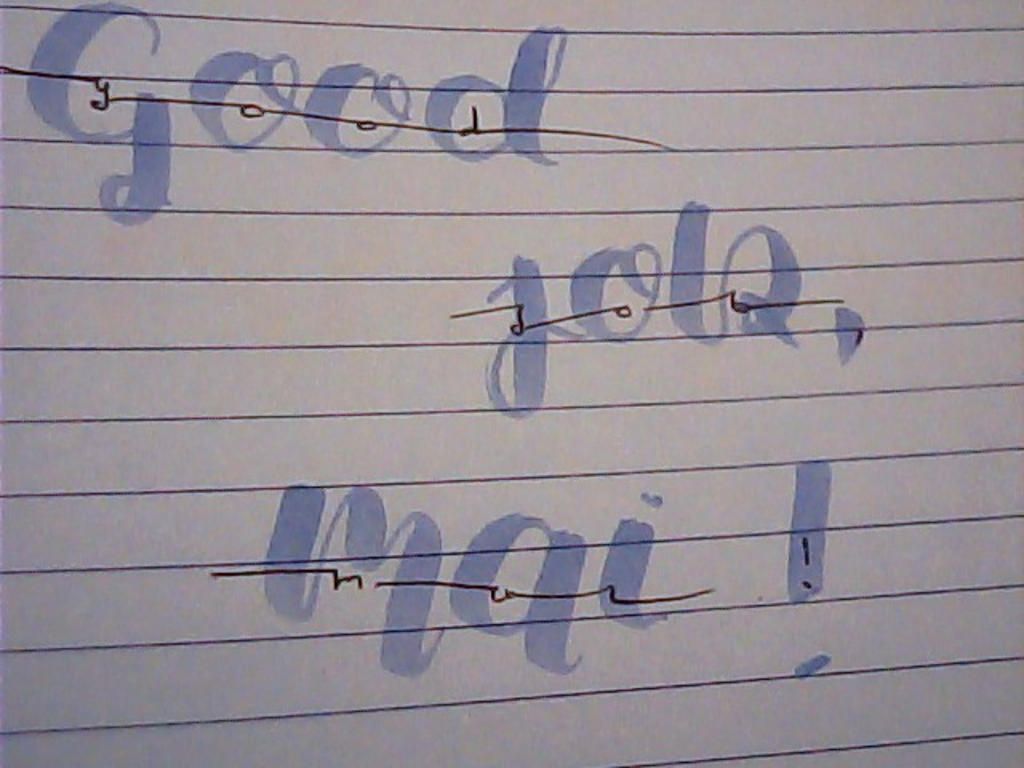 Good
job,
mai !